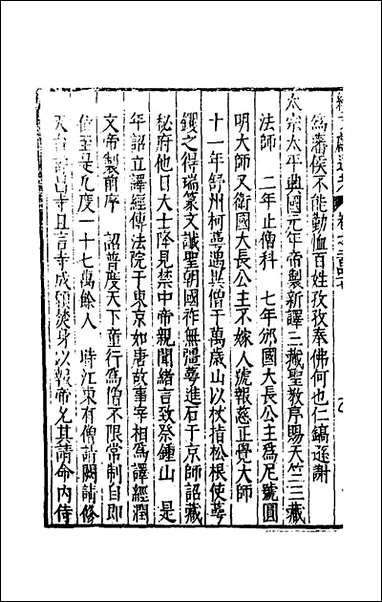 為藩侯不能勤恤百姓孜孜奉佛何也仁鎬遜謝
太宗太平興國元年帝製新譯三藏聖教序賜天竺三藏
法師　二年止僧科　七年邠國大長公主為尼號圓
明大師又衛國大長公主不嫁人號報慈正覺大師
十一年舒州柯萼遇異僧于萬歲山以杖指松根使萼
钁之得瑞篆文讖聖朝國祚無疆萼進石于京師詔藏
秘府他日大士降見禁中帝親聞緒言致祭鍾山　是
年詔立譯經傳法院于東京如唐故事宰相為譯經潤
文帝製前序　詔普度天下童行為僧不限常制自即
位至是凡度一十七萬餘人　時江東有僧詣闕請修
天台　　寺且言寺成願焚身以報帝允其請命內侍